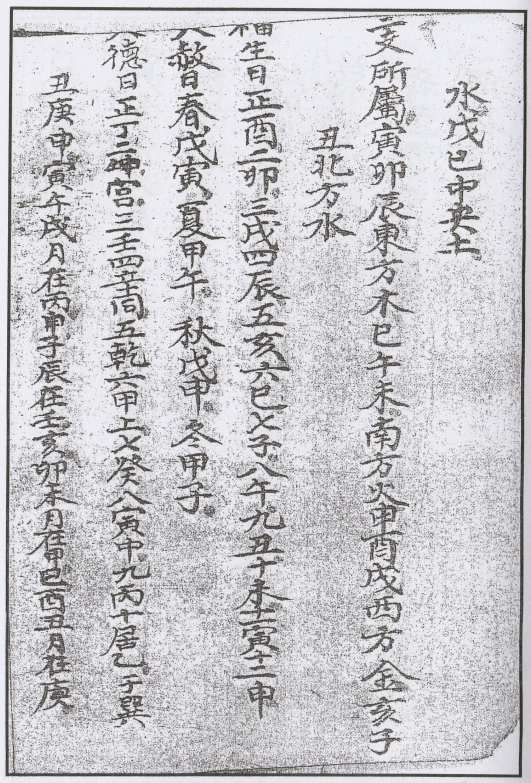 水戊己中央土
二支所屬寅卯辰東方木巳午未南方火申酉戌西方金亥子
丑北方水
福生日正酉二卯三戌四辰五亥六巳七子八午九丑十未十一寅十二申
天赦日春戊寅夏甲午秋戊申冬甲子
天德日正丁二坤宮三壬四辛同五乾六甲上七癸八寅中九丙十居乙子巽
丑庚申寅午戌月在丙申子辰在壬亥卯未月在甲巳酉丑月在庚